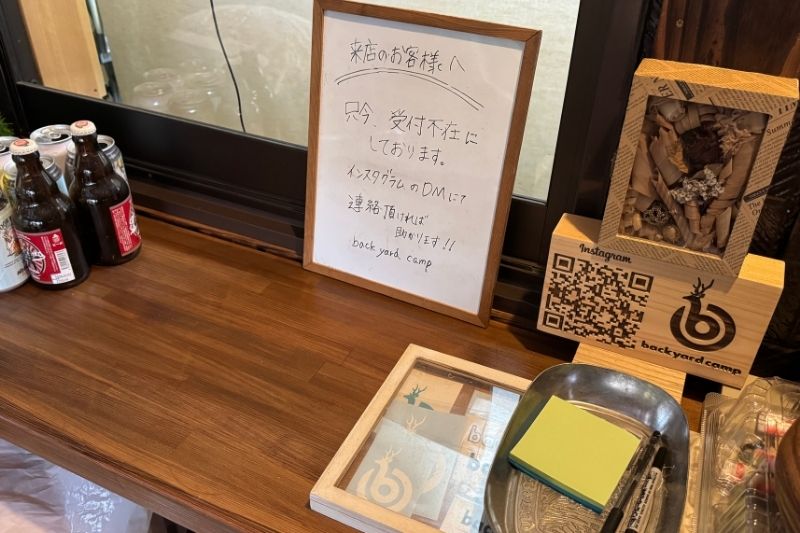 来店のお客様へ
只今、受付不在に
しております。
インスタグラムのDMにて
連絡頂ければ
助かります!!
back yard camp
Instagram
backyardcamp